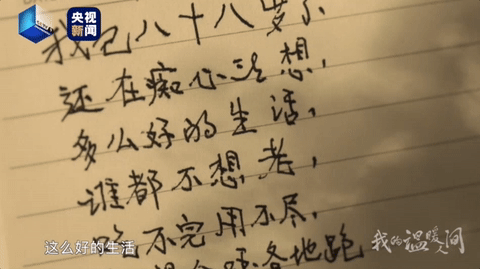 央视
新闻
我已八十八岁了
还在痴心妄想,
多么好的生活,
谁都不想老,
吃不完用不尽,
这么好的生活
各地跑
我的温暖人间